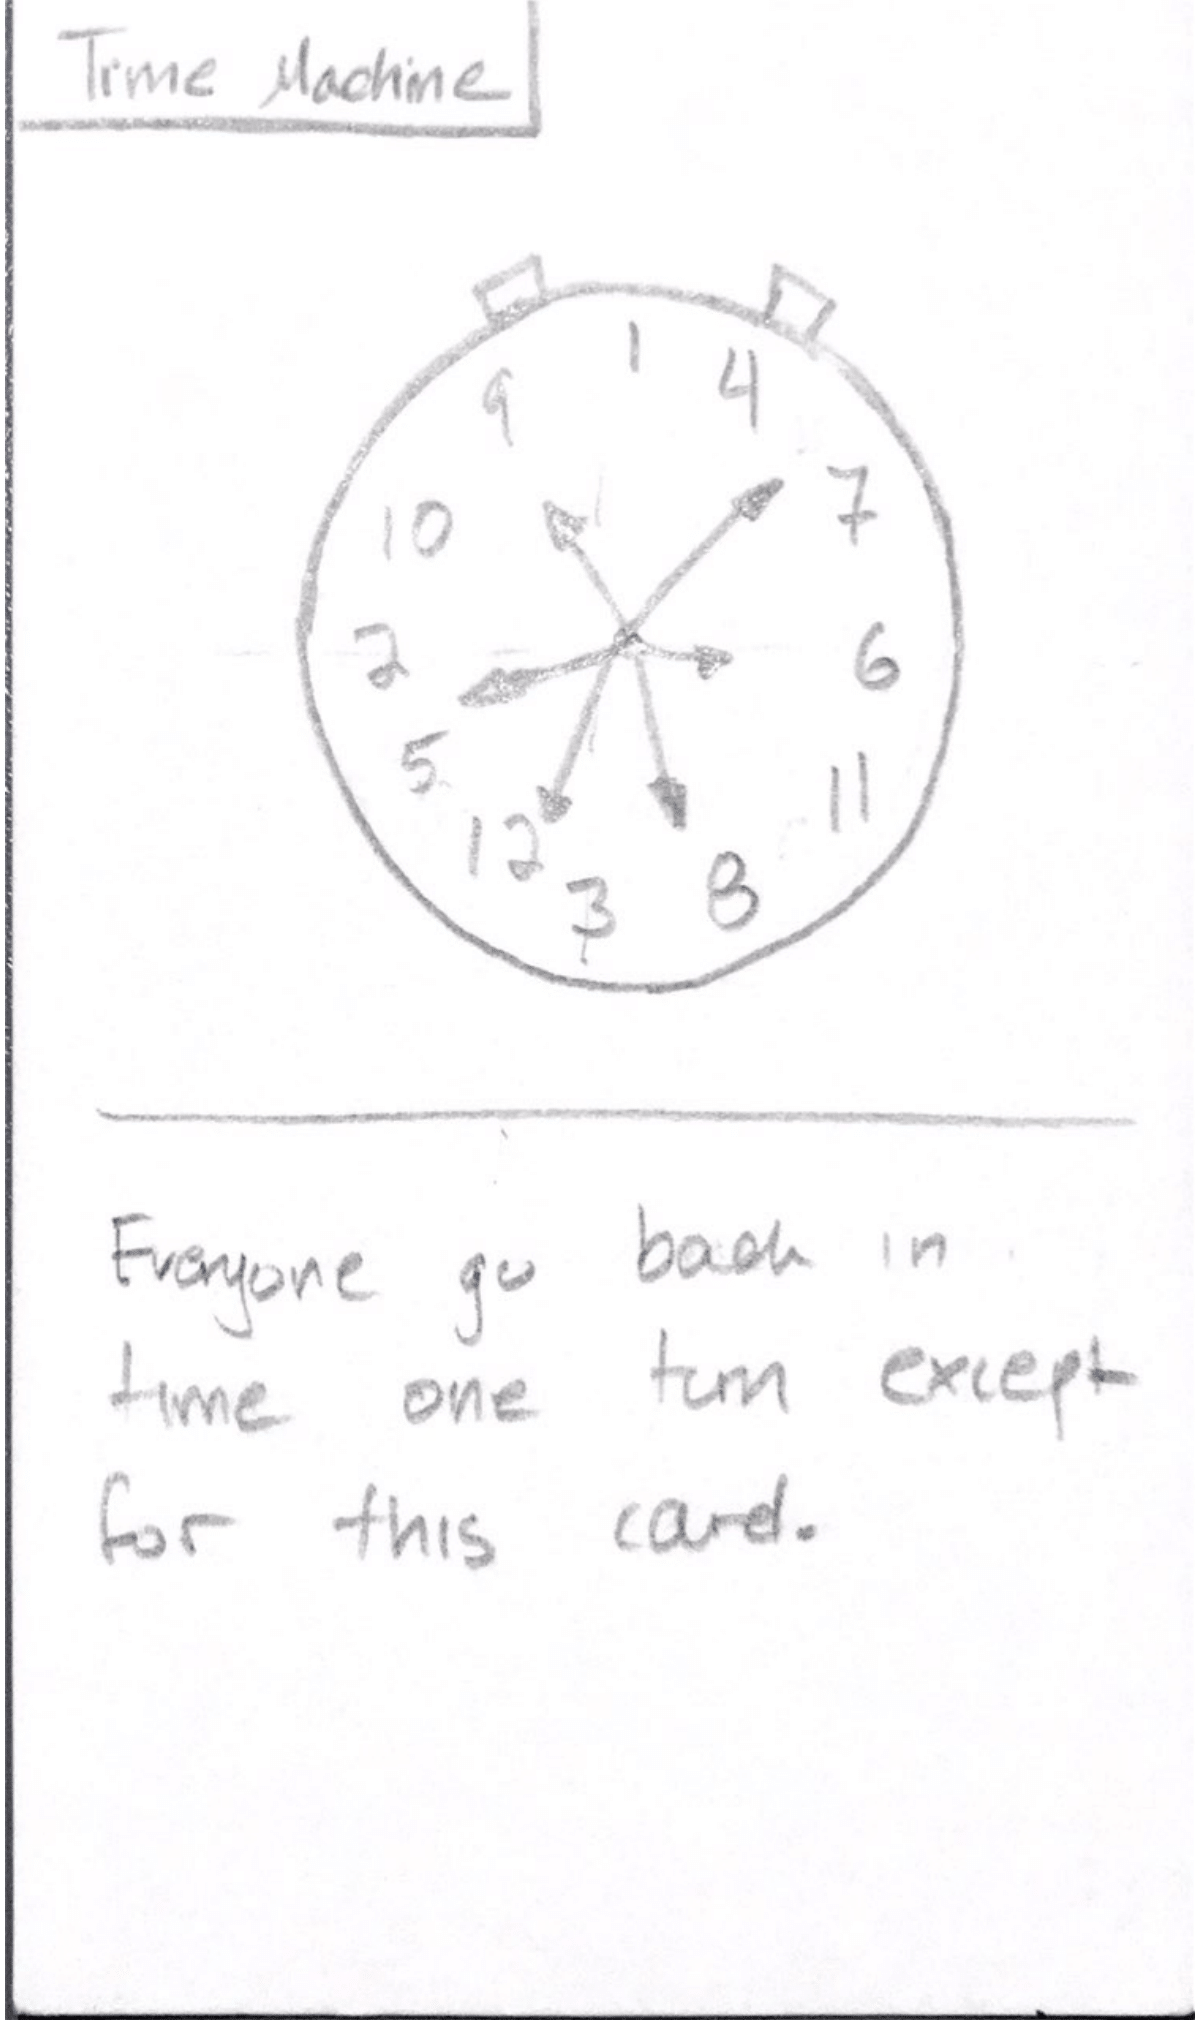 Time Machine
1
4
9
7
10
2
6
5
11
12
3
8
Everyone go back in
time one turn except
for this card.